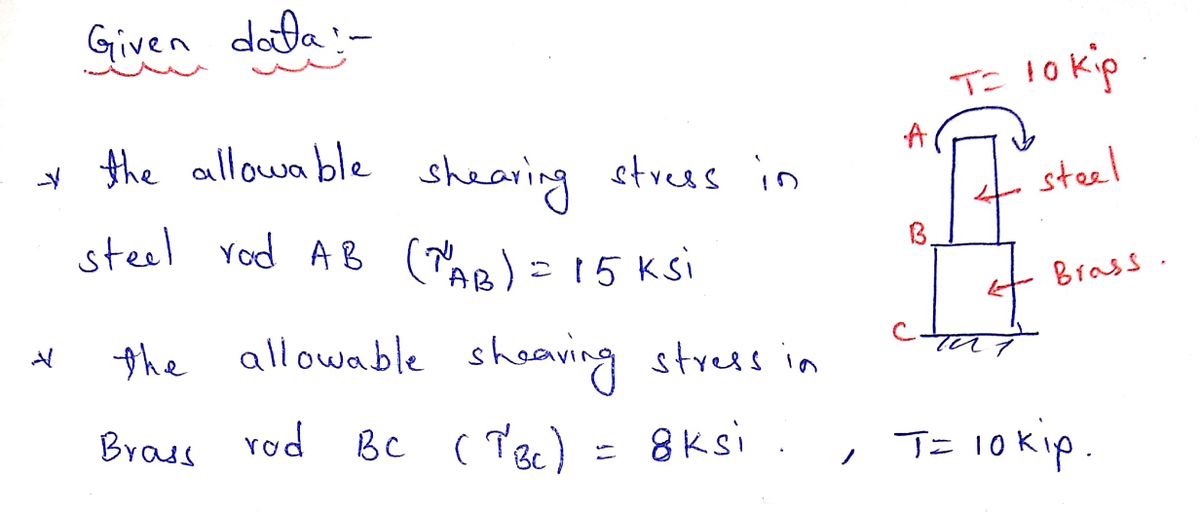 Given data:-
T= 10 Kip
A
* the allowable shearing stress in
steel
B
steel rod AB (τAB) = 15 Ksi
Brass.
C
* the allowable shearing stress in
Brass rod BC (τBC) = 8Ksi. , T= 10 Kip.